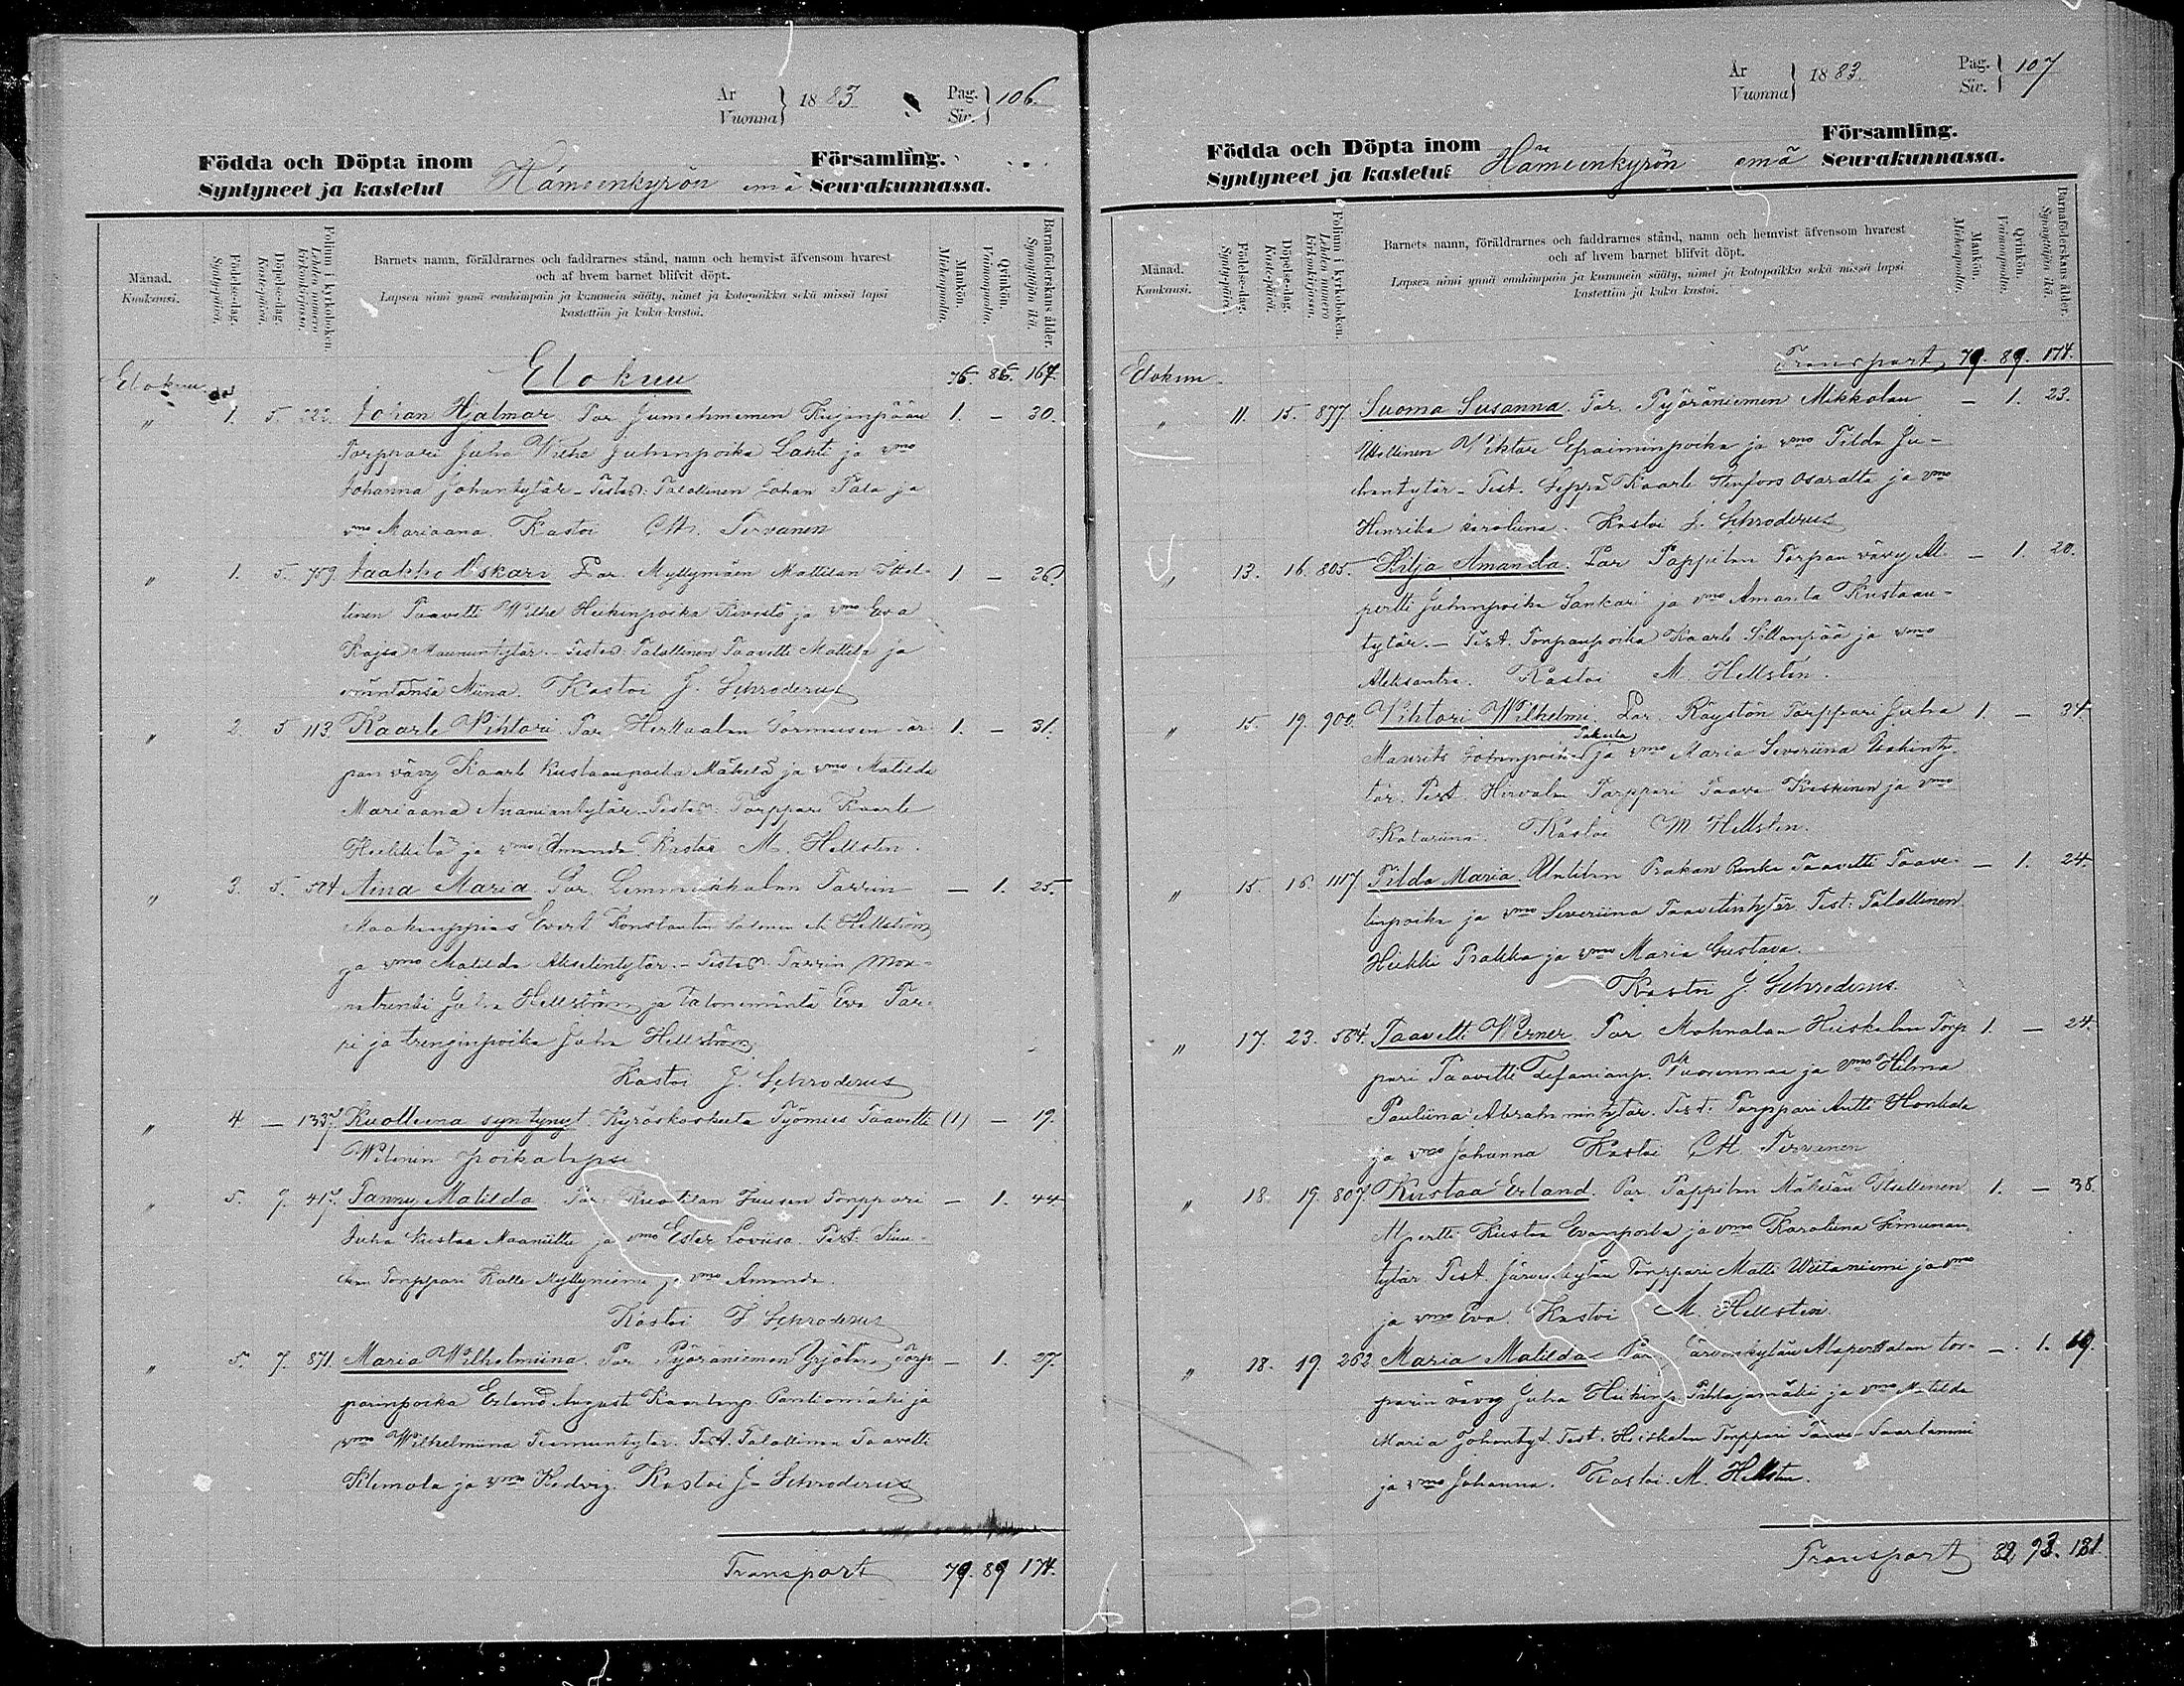 År Vuonna } 1883 Pag. Siv. } 106.
Födda och Döpta inom Församling.
Syntyneet ja kastetut Hämeenkyrön emä Seurakunnassa.
Månad. Kuukausi.
Födelse-dag. Syntypäivä.
Döpelse-dag. Kastepäivä.
Folium i kyrkoboken. Lehden numero kirkonkirjassa.
Barnets namn, föräldrarnes och faddrarnes stånd, namn och hemvist äfvensom hvarest
och af hvem barnet blifvit döpt.
Lapsen nimi ynnä vanhimpain ja kummein sääty, nimet ja kotopaikka sekä missä lapsi
kastettiin ja kuka kastoi.
Mankön. Miehenpuolta.
Qvinkön. Vaimonpuolta.
Barnaföderskans ålder. Synnyttäjän ikä.
Elokuu Elokuu 76. 86. 167.
" 1. 5. 222. Johan Hjalmar Par Kujanpään 1. – 30.
Torppari Juha Wilhe Juhanpoika Lahti ja vmo
Johanna Johantytär – Testes: Talollinen Johan Pala ja
vmo Mariaana. Kastoi M. Tervanen
" 1. 5. 759. Jaakko Oskari Par. Myllymäen Mattilan Itsel- 1 – 26
linen Taavetti Wilhe Heikinpoika Kivistö ja vmo Eva
Kajsa Maununtytär. – Testes: Talollinen Taavetti Mattila ja
emäntänsä Miina. Kastoi J. Schroderus
" 2. 5 113. Kaarle Vihtori Par. Herttualan Tormusen tor- 1. – 31.
pan vävy Kaarle Kustaanpoika Mäkelä ja vmo Matilda
Mariaana Ananiantytär. Testes: Torppari Kaarle
Heikkilä ja vmo Amanda. Kastoi M. Hellsten.
" 3. 5. 584 Aina Maria. Par. Lemmakkalan Tarrin – 1. 25.
Evert Konstantin Hellström
ja vmo Matilda Akselintytär. – Testes Tarrin Mou-
natrenki Juha Hellström ja talonemäntä Eva Tar-
ri ja trenginpoika Juha Hellström.
Kastoi J. Schroderus
" 4 – 1337. Kuolleena syntynyt Kyröskoskelta Työmies Taavetti (1) – 19.
poikalapsi
" 5. 7. 417. Fanny Matilda. Par. Juusen Torppari – 1. 44.
Juha Kustaa Maaniittu ja vmo Ester Loviisa. Test. Sim-
Torppari Kalle Myllyniemi ja vmo Amanda.
Kastoi J Schroderus
" 5. 7. 871. Maria Wilhelmiina. Par Pyöräniemen Yrjölän Torp – 1. 27.
parinpoika Erland August Kaarlenp. Pantiomäki ja
vmo Wilhelmiina Test. Talollinen Taavetti
Kilemola ja vmo Hedvig. Kastoi J. Schroderus
Transport 79. 89 174.
År Vuonna } 1883. Pag. Siv. } 107
Födda och Döpta inom Församling.
Syntyneet ja kastetut Hämeenkyrön emä Seurakunnassa.
Månad. Kuukausi.
Födelse-dag. Syntypäivä.
Döpelse-dag. Kastepäivä.
Folium i kyrkoboken. Lehden numero kirkonkirjassa.
Barnets namn, föräldrarnes och faddrarnes stånd, namn och hemvist äfvensom hvarest
och af hvem barnet blifvit döpt.
Lapsen nimi ynnä vanhimpain ja kummein sääty, nimet ja kotopaikka sekä missä lapsi
kastettiin ja kuka kastoi.
Mankön. Miehenpuolta.
Qvinkön. Vaimonpuolta.
Barnaföderskans ålder. Synnyttäjän ikä.
Elokuu. Transport 79. 89. 174.
" 11. 15. 877. Suoma Susanna. Par. Pyöräniemen Mikkolan – 1. 23.
Viktor Efraiminpoika ja vmo Tilda Ju-
hantytär – Test. Seppä Kaarle Stenfors Osaralta ja vmo
Henrika Karoliina. Kastoi J. Schroderus
" 13. 16. 805. Hilja Amanda. Par Pappilan Torpan vävy Al- – 1. 20.
pertti Juhanpoika Sankari ja vmo Amanta Kustaan-
tytär. – Test. Torpanpoika Kaarle Sillanpää ja vmo
Aleksantra. Kastoi M. Hellsten.
" 15. 19. 900. Vihtori Wilhelmi. Par. Röystön Torppari Juha 1. – 34.
Maurits Johanpoika Pakula ja vmo Maria Severiina Iisakinty-
tär. Test. Hirvolan Torppari Taave Koskinen ja vmo
Katariina. Kastoi M. Hellsten.
" 15. 16. 1117. Tilda Maria. Prakan Renki Taavetti Taave- – 1. 24.
tinpoika ja vmo Severiina Taavetintytär. Test: Talollinen
Heikki Prakka ja vmo Maria Gustava.
Kastoi J. Schroderus.
" 17. 23. 564. Taavetti Werner Par Mahnalan Heiskalan Torp- 1. – 24.
pari Taavetti Tefanianp. Vuorenmaa ja vmo Hilma
Pauliina Abrahamintytär. Test: Torppari Antti Honkala
ja vmo Johanna Kastoi M. Tervanen
" 18. 19. 807 Kustaa Erland. Par. Pappilan Mäkelän Itsellinen 1. – 38.
Alpertti Kustaa Evanpoika ja vmo Karoliina Simunan
tytär. Test. Järvenkylän Torppari Matti Wiitaniemi ja vmo
ja vmo Eva. Kastoi M. Hellsten.
" 18. 19. 262 Maria Matilda Par. Järvenkylän Alapertulan tor- – 1. 19.
parin vävy Juha Heikinp. Pihlajamäki ja vmo Matilda
Maria Johantyt. Test. Heiskalan Torppari Taave Saarlammi
ja vmo Johanna. Kastoi M. Hellsten.
Transport 82 93. 181.